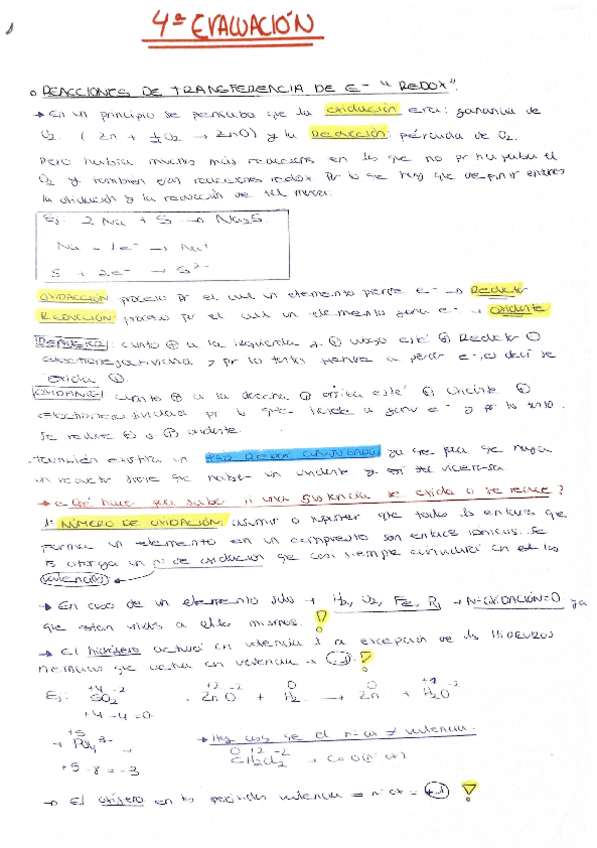 4ª EVALUACIÓN
REACCIONES DE TRANSFERENCIA DE E- "REDOX".
→ En un principio se pensaba que la oxidación era: ganancia de
O₂. ( Zn + ½O₂ → ZnO) y la Reducción: pérdida de O₂.
Pero había muchas más reacciones en las que no participaba el
O₂ y también eran reacciones redox Por lo que hay que definir entonces
la oxidación y la reducción de tal manera:
Ej: 2 Na + S → Na₂S.
Na - 1e⁻ → Na⁺
S + 2e⁻ → S²⁻
OXIDACIÓN proceso por el cual un elemento pierde e⁻ → Reductor
REDUCCIÓN: proceso por el cual un elemento gana e⁻ → Oxidante
REDUCTOR: cuanto ⊕ a la izquierda y abajo esté ⊕ Reductor ⊖
electronegatividad y por lo tanto tiende a perder e⁻, es decir se
oxida
OXIDANTE: cuanto ⊕ a la derecha y arriba esté ⊕ oxidante ⊕
electronegatividad por lo que tiende a ganar e⁻ y por lo tanto
se reduce
También existirá un PAR REDOX CONJUGADO, ya que para que haya
un reductor tiene que haber un oxidante y viceversa.
→ ¿Qué hace que saber si una sustancia se oxida o se reduce?
1º NÚMERO DE OXIDACIÓN: asumir o suponer que todos los enlaces que
forma un elemento en un compuesto son enlaces iónicos. Se
le otorga un nº de oxidación que casi siempre coincidirá con el de las
valencias
→ En caso de un elemento solo → H₂, O₂, Fe, → Nº OXIDACIÓN=0 ya
que están unidos a ellos mismos. !
→ El hidrógeno actúa con valencia 1 a excepción de los HIDRUROS
metálicos que actúa con valencia → -1. !
+4 -2 +2 -2 0 0 +1 -2
Ej: SO₂ ZnO + H₂ → Zn + H₂O
+4-4=0
+5
PO₄³⁻ → Hay casos que el nº ox ≠ valencia.
0 +1 -2
+5-8=-3
→ El oxígeno en los peróxidos valencia = nº ox = -1 !